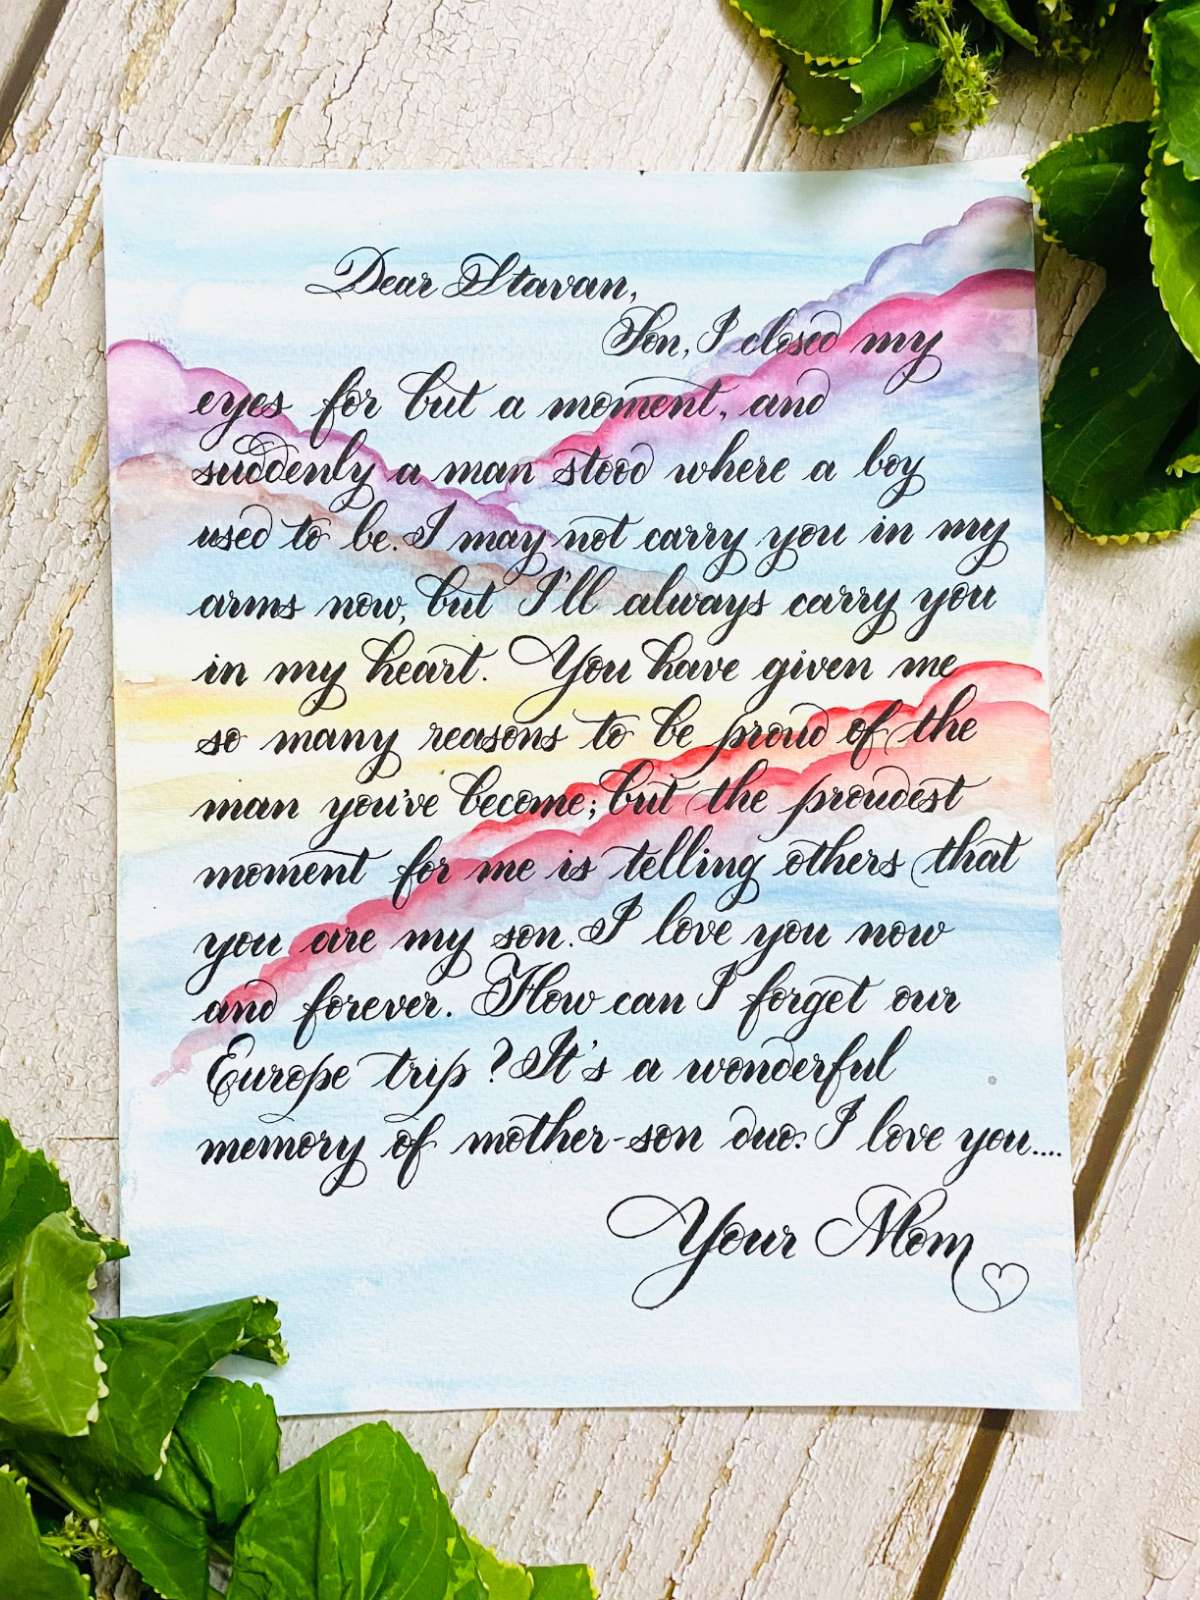 Dear Stavan,
Son, I closed my
eyes for but a moment, and
suddenly a man stood where a boy
used to be. I may not carry you in my
arms now, but I'll always carry you
in my heart. You have given me
so many reasons to be proud of the
man you've become; but the proudest
moment for me is telling others that
you are my son. I love you now
and forever. How can I forget our
Europe trip? It's a wonderful
memory of mother-son duo. I love you....
Your Mom